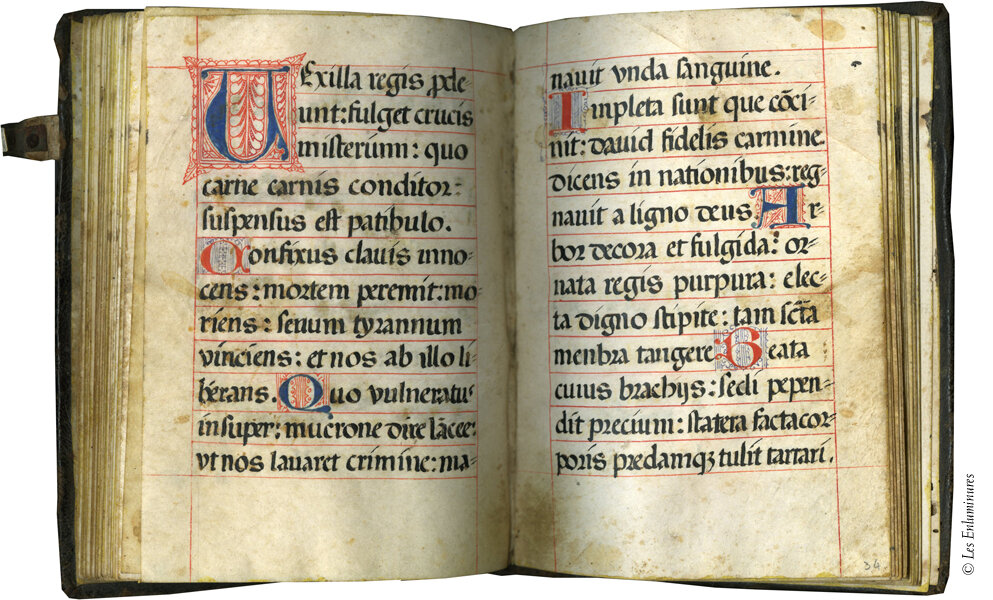 UExilla regis ꝓde
unt: fulget crucis
misterium: quo
carne carnis conditor:
suspensus est patibulo.
Confixus clauis inno⸗
cens: mortem peremit: mo⸗
riens: seuum tyrannum
vinciens: et nos ab illo li⸗
berans. Quo vulneratus
insuper: mucrone dire lācee:
vt nos lauaret crimine: ma⸗
nauit vnda sanguine.
Impleta sunt que cōci⸗
nit: dauid fidelis carmine.
dicens in nationibus: reg⸗
nauit a ligno deus. Ar⸗
bor decora et fulgida: or⸗
nata regis purpura: elec⸗
ta digno stipite: tam sct̄a
menbra tangere. Beata
cuius brachijs: sedi pepen⸗
dit precium: statera facta cor⸗
poris predamqꝫ tulit tartari.
34
© Les Enluminures